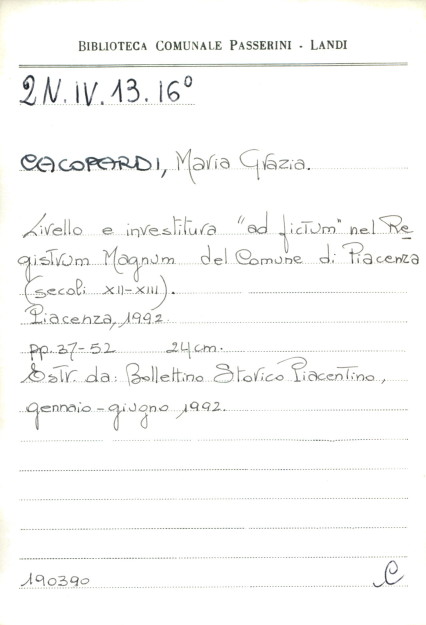 BIBLIOTECA COMUNALE PASSERINI - LANDI
2N.IV.13.16°
CACOPARDI, Maria Grazia.
Livello e investitura "ad fictum" nel Re-
gistrum Magnum del Comune di Piacenza
(secoli XII-XIII).
Piacenza, 1992.
pp. 37-52 24 cm.
Estr. da: Bollettino Storico Piacentino,
gennaio-giugno 1992.
190390 C